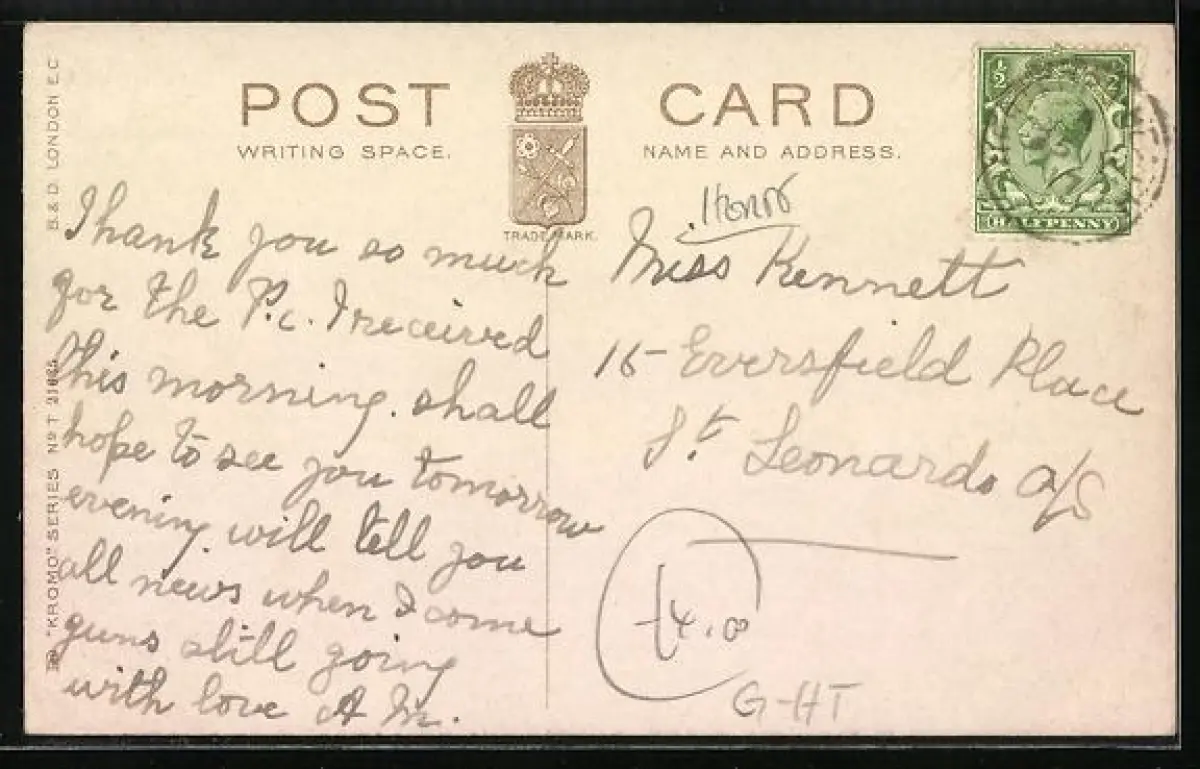 POST CARD
WRITING SPACE.
NAME AND ADDRESS.
TRADE MARK.
B. & D. LONDON E.C
"KROMO" SERIES No T
½
HALFPENNY
Thank you so much
for the P.c. I received
this morning. shall
hope to see you tomorrow
evening. will tell you
all news when I come
guns still going
with love A M.
Miss Kennett
15 Eversfield Place
St Leonards o/S
G-HT